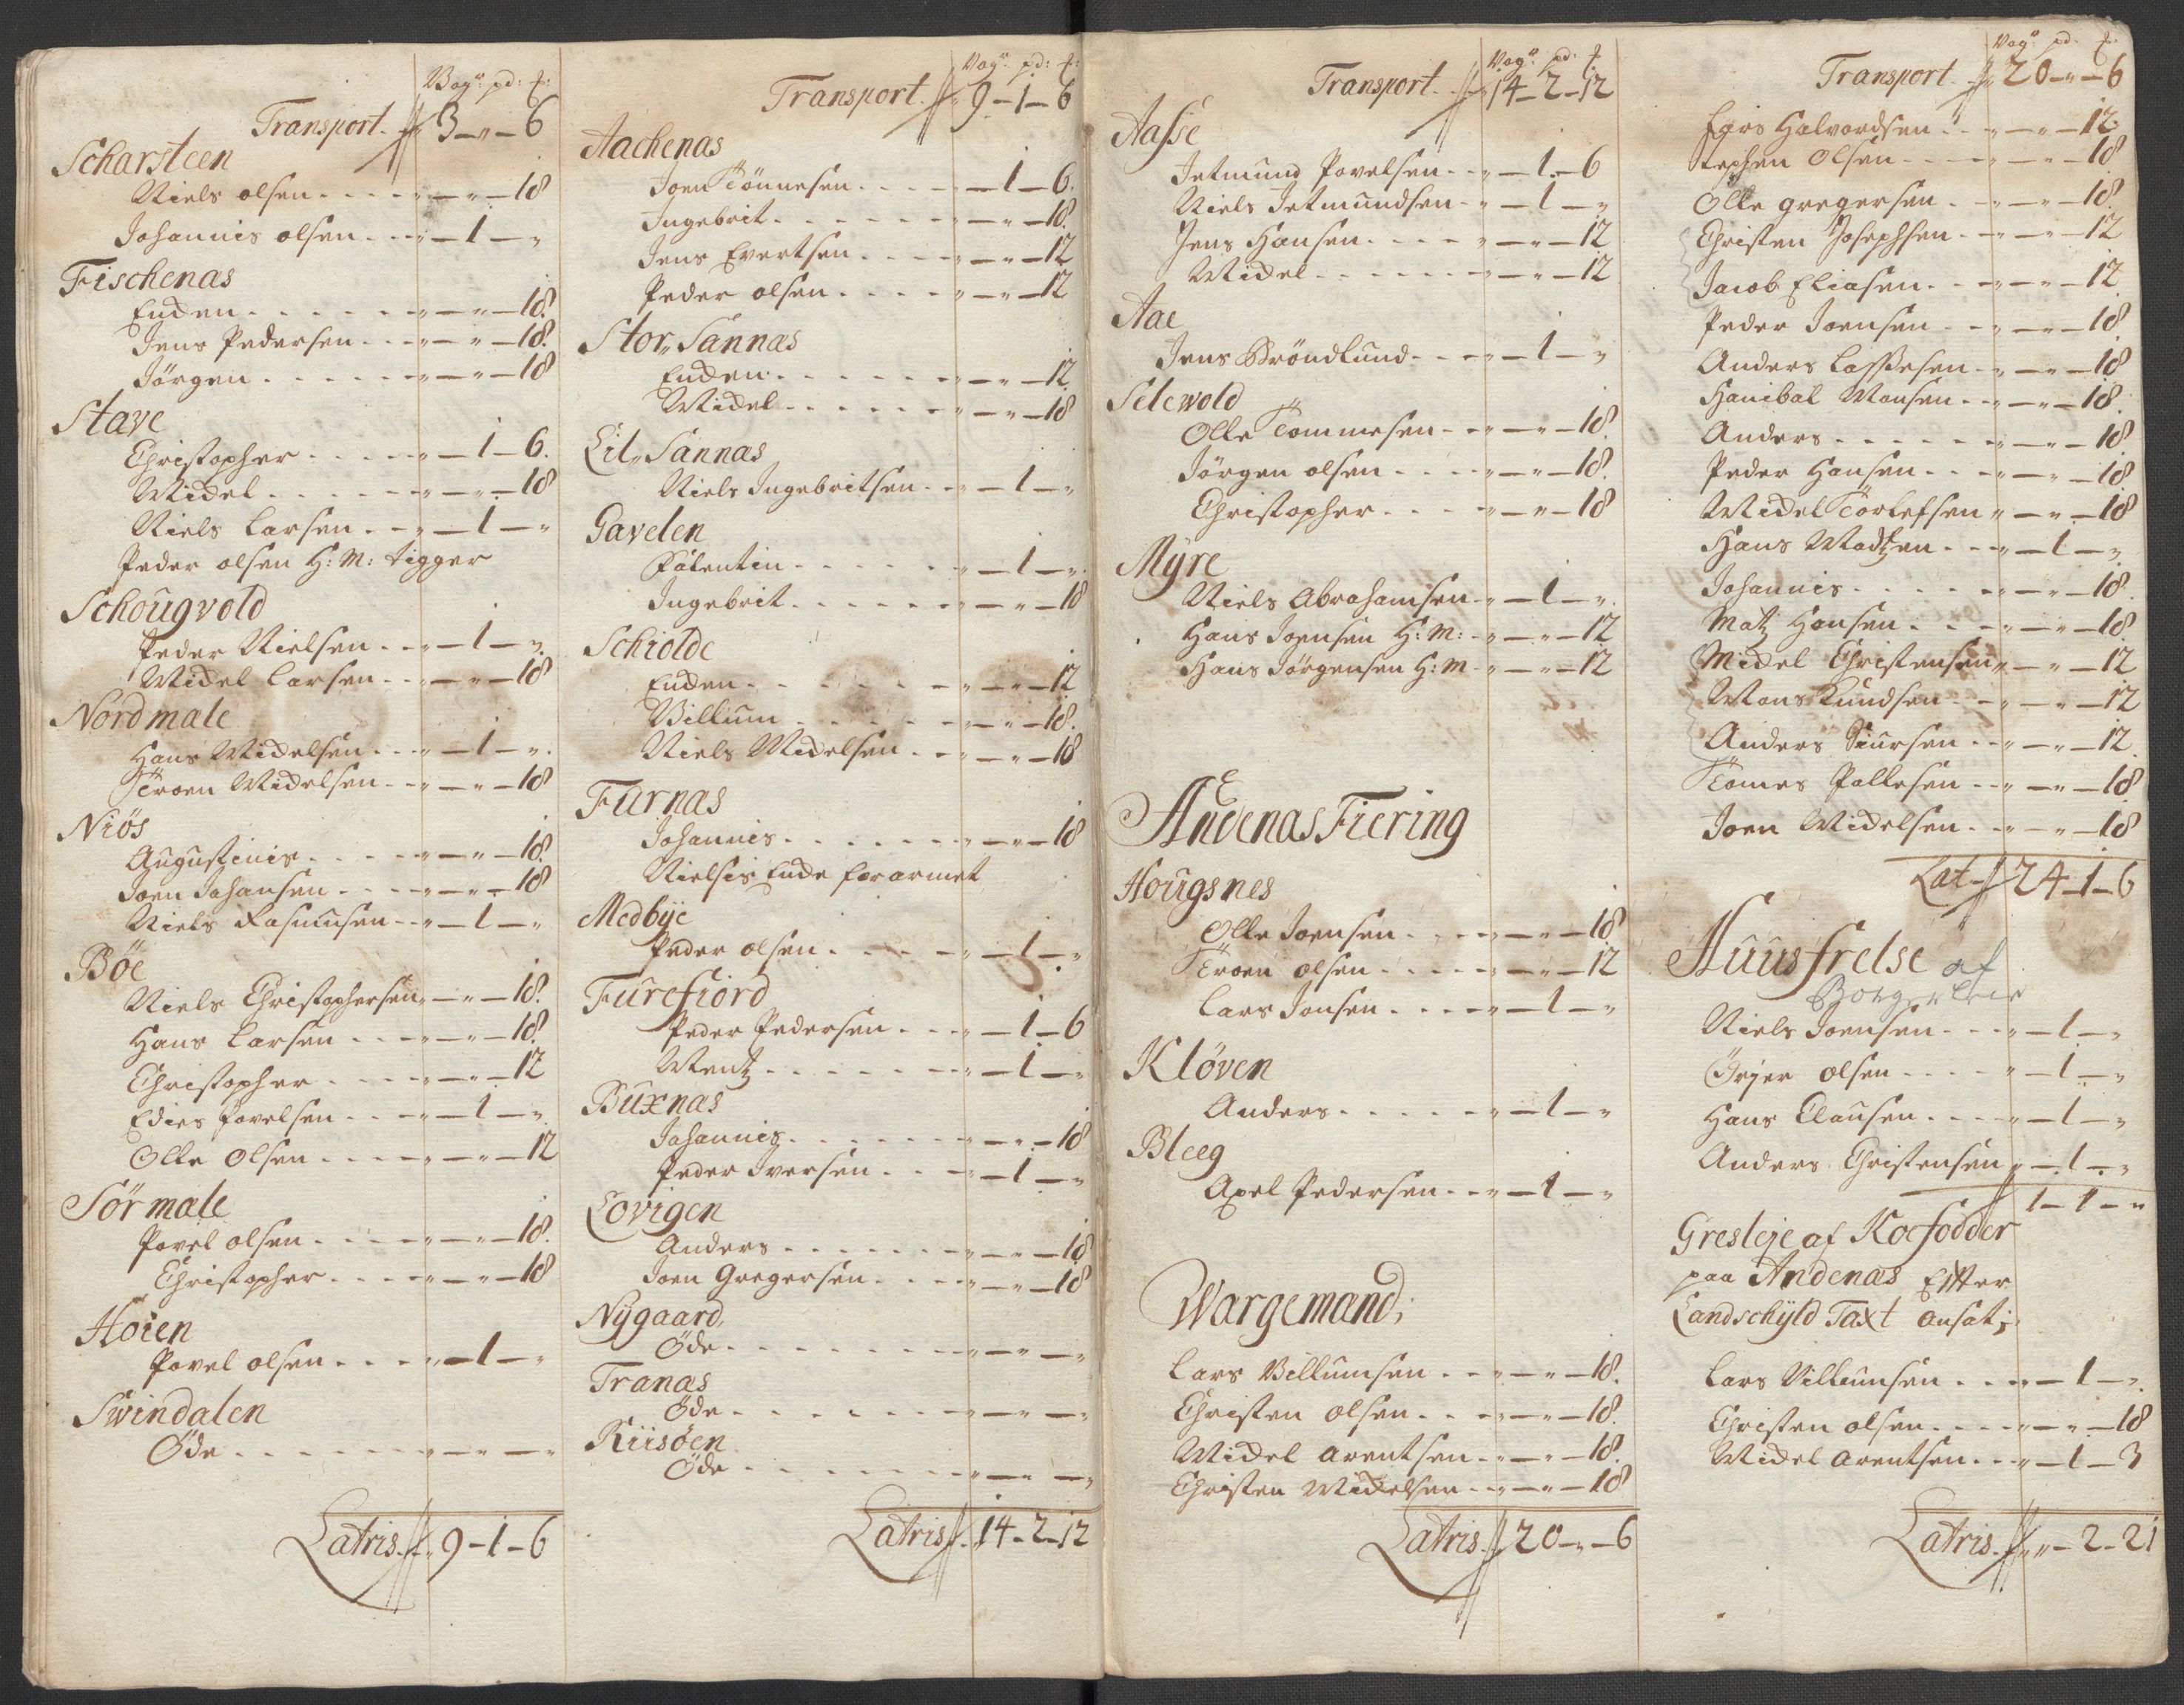 Vog: pd: ƚ:
Transport. 3 – „ – 6
Scharsteen
Niels olsen . . . . „ – „ – 18
Johannis olsen . . . „ – 1 – „
Fischenas
Enden . . . . . . „ – „ – 18.
Jens Pedersen . . . „ – „ – 18.
Jörgen . . . . . . „ – „ – 18
Stave
Christopher . . . . . „ – 1 – 6.
Midel . . . . . . „ – „ – 18
Niels Larsen . . „ – 1 – „
Peder olsen H: M: tigger
Schougvold
Peder Nielsen . . „ – 1 – „
Midel Larsen . . „ – „ – 18
Nordmale
Hans Midelsen . . . „ – 1 – „
Troen Midelsen . . „ – „ – 18
Niös
Augustinis . . . . . „ – „ – 18.
Joen Johansen . . . . „ – „ – 18
Niels Rasmusen . . „ – 1 – „
Böe
Niels Christophersen „ – „ – 18.
Hans Larsen . . . „ – „ – 18.
Christopher . . . . „ – „ – 12
Edies Povelsen . . . „ – 1 – „
Olle Olsen . . . . „ – „ – 12
Sör male
Povel olsen . . . . „ – „ – 18.
Christopher . . . . „ – „ – 18
Hoien
Povel olsen . . . . „ – 1 – „
Swindalen
Öde . . . . . . . „ – „ – „
Latris. 9 – 1 – 6
Vog: pd: ƚ:
Transport. 9 – 1 – 6
Aachenas
Joen Tönnesen . . . . – 1 – 6.
Ingebrit . . . . . . . „ – „ – 18.
Jens Evertsen . . . . „ – „ – 12
Peder olsen . . . . „ – „ – 12
Stor„ Sannas
Enden . . . . . . . „ – „ – 12
Midel . . . . . . . „ – „ – 18
Lil„ Sannas
Niels Ingebritsen . . „ – 1 – „
Gavelen
Falentin . . . . . . „ – 1 – „
Ingebrit . . . . . . „ – „ – 18
Schiolde
Enden . . . . . . . „ – „ – 12
Villum . . . . . . „ – „ – 18.
Niels Midelsen . . „ – „ – 18
Furnas
Johannis . . . . . . . „ – „ – 18
Nielsis Ende forarmet
Medbÿe
Peder olsen . . . . . „ – 1 – „
Furefiord
Peder Pedersen . . . „ – 1 – 6
Mentz . . . . . . . „ – 1 – „
Buxnas
Johannis . . . . . . . „ – „ – 18
Peder Iversen . . . – 1 – „
Lovigen
Anders . . . . . . . „ – „ – 18
Joen Gregersen . . . . „ – „ – 18
Nÿgaard
Öde . . . . . . . . „ – „ – „
Tranas
Öde . . . . . . . . „ – „ – „
Riisöen
Öde . . . . . . . . „ – „ – „
Latris. 14 – 2 – 12
Vog: pd: ƚ:
Transport. 14 – 2 – 12
Aasse
Jetmund Povelsen . . „ – 1 – 6
Niels Jetmundsen . „ – 1 – „
Jens Hansen . . . . „ – „ – 12
Midel . . . . . . . „ – „ – 12
Aae
Jens Bröndlund . . . „ – 1 – „
Selewold
Olle Tommesen . . „ – „ – 18.
Jörgen olsen . . . . „ – „ – 18.
Christopher . . . . „ – „ – 18
Mÿre
Niels Abrahamsen . „ – 1 – „
Hans Joensen H: M: . „ – „ – 12
Hans Jörgensen H: M . „ – „ – 12
Andenas Fiering
Hougsnes
Olle Joensen . . . . „ – „ – 18
Troen olsen . . . . . „ – „ – 12
Lars Jonsen . . . . „ – 1 – „
Klöven
Anders . . . . . . „ – 1 – „
Bleeg
Axel Pedersen . . „ – 1 – „
Wargemand;
Lars Villumsen . . „ – „ – 18.
Christen olsen . . . „ – „ – 18.
Midel arentsen . „ – „ – 18.
Christen Midelsen . . „ – „ – 18
Latris. 20 – „ – 6
Vog: pd: ƚ:
Transport. 20 – „ – 6
Halvordsen . . . „ – „ – 12.
Stephen olsen . . . . „ – „ – 18
Olle gregersen . . „ – „ – 18.
Christen Josephsen . . „ – „ – 12
Jacob Eliasen . . . „ – „ – 12
Peder Joensen . . „ – „ – 18
Anders Lassesen . „ – „ – 18
Hanibal Monsen . . „ – „ – 18.
Anders . . . . . . „ – „ – 18
Peder Hansen . . . „ – „ – 18
Midel Torlefsen „ – „ – 18
Hans Madtzen . . . „ – 1 – „
Johannis . . . . . „ – „ – 18.
Matz Hansen . . . „ – „ – 18.
Midel Christensen „ – „ – 12
Mons Knudsen . . „ – „ – 12
Anders Siursen . . „ – „ – 12
Tomes Pallesen . . „ – „ – 18
Joen Midelsen . . „ – „ – 18
Lat. 24 – 1 – 6
Huusfrelse af
Borgerleie
Niels Joensen . . . „ – 1 – „
Örjer olsen . . . . „ – 1 – „
Hans Clausen . . . . „ – 1 – „
Anders Christensen „ – 1 – „
1 – 1 – „
Gresleje af Koefodder
paa Andenas Efter
Landschÿld Taxt ansat;
Lars Villumsen . . . „ – 1 – „
Christen olsen . . . . „ – „ – 18
Midel arentsen . . . „ – 1 – 3
Latris. „ – 2 – 21